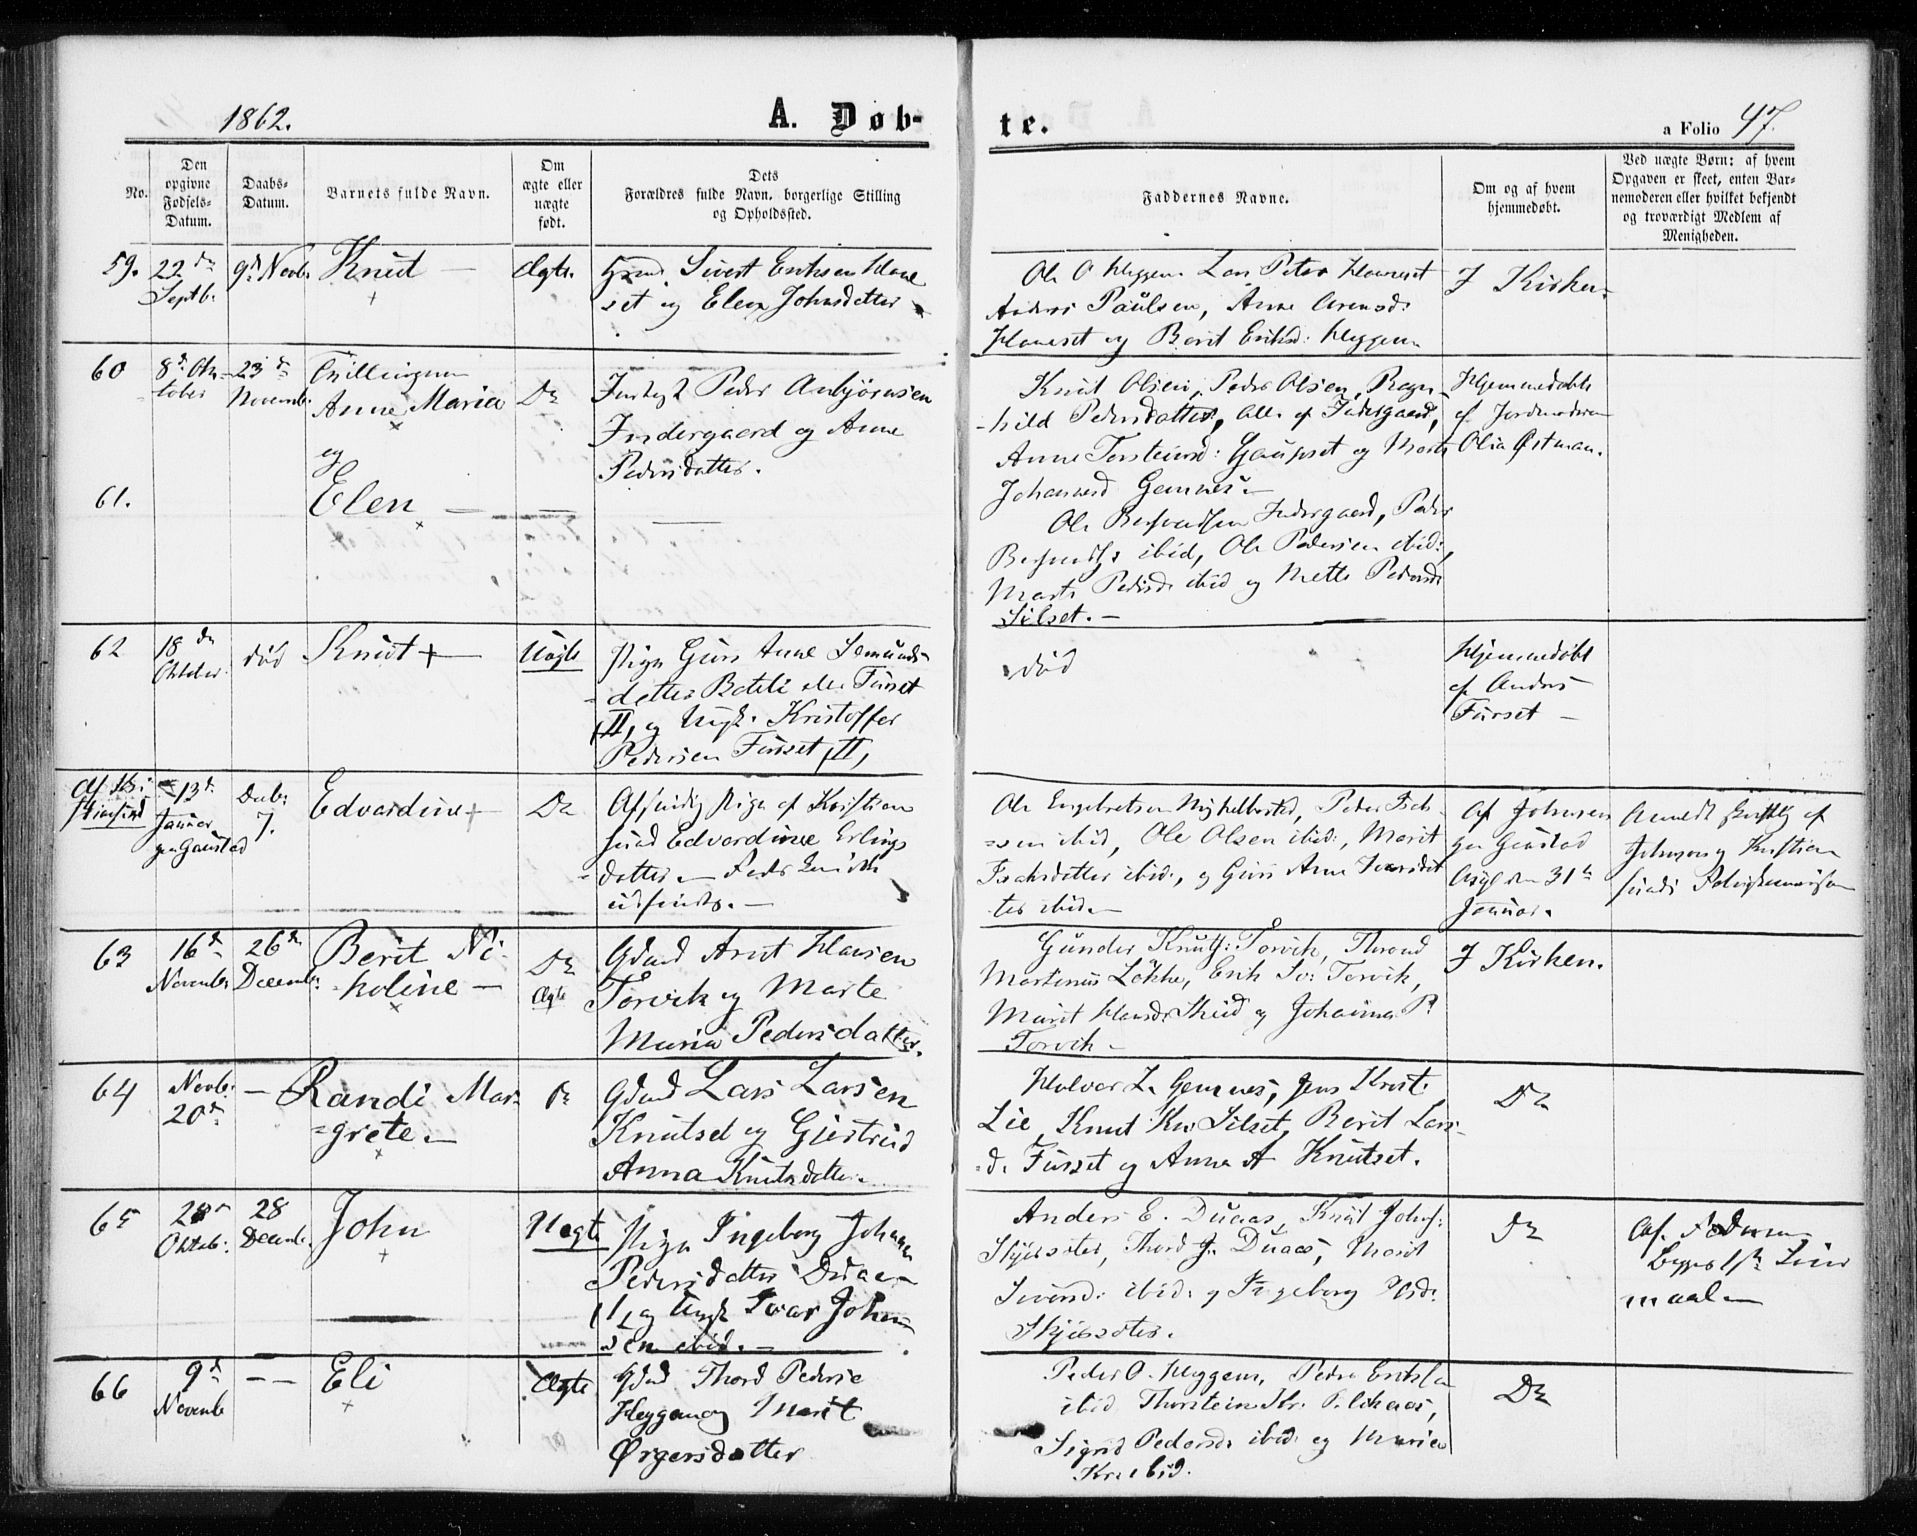 1862.
A. Døb-
te.
a Folio 47.
No.
Den
opgivne
Fødsels-
Datum.
Daabs-
Datum.
Barnets fulde Navn.
Om
ægte eller
uægte
født.
Dets
Forældres fulde Navn, borgerlige Stilling
og Opholdssted.
Faddernes Navne.
Om og af hvem
hjemmedøbt.
Ved uægte Børn: af hvem
Opgaven er skeet, enten Bar-
nemoderen eller hvilket bekjendt
og troværdigt Medlem af
Menigheden.
59. 22 dn
Septb.
9d Novb.
Knud —
Ægte.
Sivert Eriksen Hane
set og Elen Johnsdatter
Ole O Heggem Lars Peters Haneset
Anders Paulsen, Anne Arensd:
Haneset og Berit Eriksd: Heggem
I Kirken.
60
8d Ok-
tober
23 d
Novemb.
Tvillingerne
Anne Maria
og
Do
Peder Anbjørnsen
Indergaard og Anne
Pedersdatter.
Knut Olsen, Peder Olsen, Ragn
hild Pedersdatter, alle af Indergaard,
Anne Torsteinsd: Gaupset og Marte
Johannesd Gemnes —
Hjemmedøbte
af Jordmoderen
Olia Østman.
61.
Elen — — —
Ole Indergaard, Peder
ibid, Ole Pedersen ibid:,
Marte Pedersd. ibid og Mette Pedersd
Silset. —
62
18 dn
Oktober.
død
Knut + —
Uægte
Pige Guri Anne Semunds-
datter Botsli eller Furset
II, og Ungk. Kristoffer
Pedersen Furset II,
død
Hjemmedøbt
af Anders
Furset —
Af Kri
stiansund
13 d.
Januar
paa Gaustad
Debr.
7.
Edvardine +
Do
Afsindig Pige af Kristian
sund Edvardine Erlings
datter —
udsindt. —
Ole Engebretsen Myhelbostad, Peder Isak
sen ibid, Ole Olsen ibid:, Marit
Isaksdatter ibid:, og Guri Anne Iversdat
ter ibid. —
Af Johnsen
paa Gaustad
Asyl den 31te
Januar.
Anmeldt skriftlig af
Johnsen og Kristian
sunds
63
16 d
November
26 d
December.
Berit Ni-
koline —
Do
Ægte
Gdmd Arnt Hansen
Torvik og Marte
Maria Pedersdatter.
Gunder Knuts: Torvik, Thrond
Martinus Løkke, Erik Iv: Torvik,
Marit Hansd. Skeid og Johanna P.
Torvik —
I Kirken.
64
Novb.
20 d
—
Randi Mar-
grete. —
Do
Gdmd Lars Larsen
Knutset og Gjertrud
Anna Knutsdatter.
Halvor L. Gemnes, Jens Krist.
Lie, Knut Kn Silset, Berit Lars-
d. Furset og Anna A Knutset.
Do
65
Oktob.
28
Decemb.
John
Uægte
Pige Ingeborg Johanna
Pedersdatter Duaas
og Ungk Ivar Johan
sen ibid. —
Anders E. Duaas, Knut Johns:
Skjersæter, Thord J. Duaas, Marit
Sivertsd: ibid: og Ingeborg Olsd:
Skjersæter.
Do
Af Faderen
66
9 d
Novemb
— —
Eli
Ægte
Gdmd Thord Peders
Heggem og Marit
Ørgersdatter
Peder O. Heggem, Peder Eriksen
ibid Thorstein Kr. Polihenes,
Sigrid Pedersd ibid. og Maria
Kr. ibid.
Do